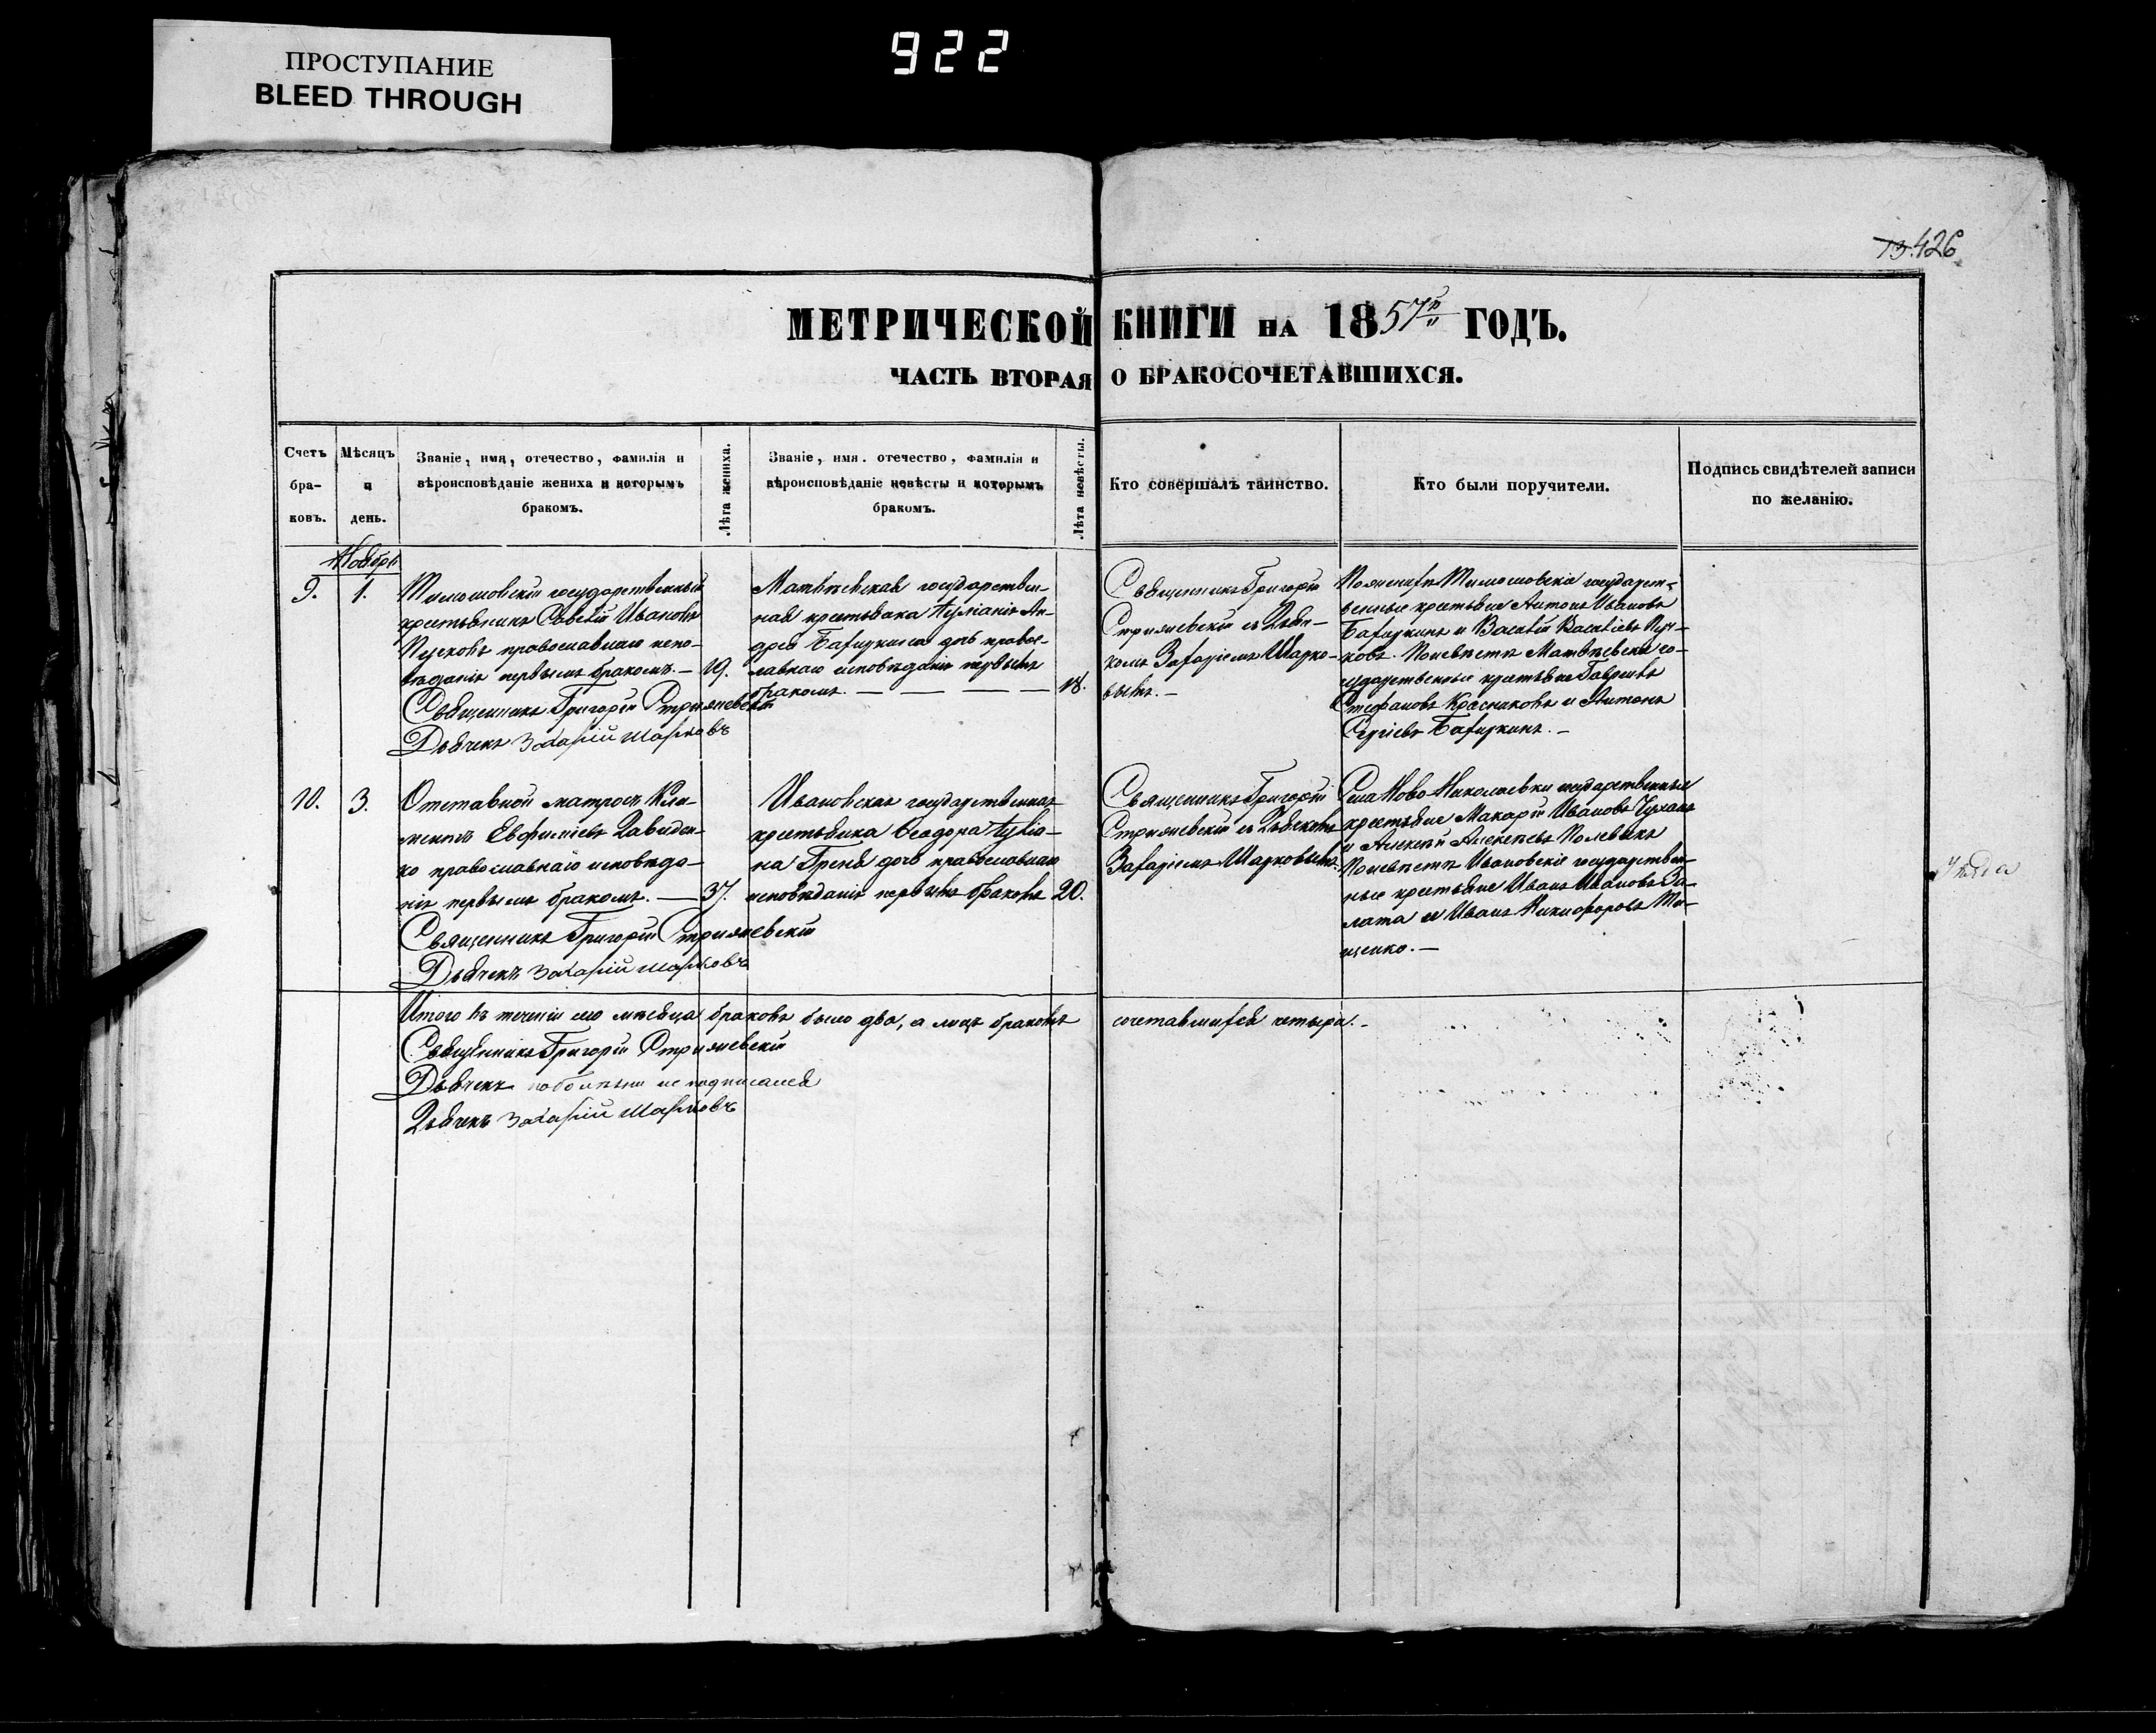 ПРОСТУПАНИЕ
BLEED THROUGH
922
73. 426
МЕТРИЧЕСКОЙ КНИГИ НА 1857й ГОДЪ.
ЧАСТЬ ВТОРАЯ О БРАКОСОЧЕТАВШИХСЯ.
Счетъ бра-ковъ.
Мѣсяцъ и день.
Званіе, имя, отечество, фамилія и
вѣроисповѣданіе жениха и которымъ
бракомъ.
Лѣта жениха.
Званіе, имя. отечество, фамилія и
вѣроисповѣданіе невѣсты и которымъ
бракомъ.
Лѣта невѣсты.
Кто совершалъ таинство.
Кто были поручители.
Подпись свидѣтелей записи
по желанію.
Ноябрь
9. 1.
Тимошовскій государственный
крестьянинъ Савелій Ивановъ
православнаго испо-
вѣданія первымъ бракомъ. —
19.
Священникъ Григорій Стрижевскій
Дьячекъ Захарій Шарковъ
Матвѣевская государствен-
ная крестьянка Ан-
дрея дочь право-
славнаго исповѣданія первымъ
бракомъ. — — — —
18.
Священникъ Григорій
Стрижевскій съ Дьяч-
комъ Захаріемъ Шарко-
вымъ. —
По женихѣ Тимошовскіе государст-
венные крестьяне Антонъ Ивановъ
и Василій Василіевъ
По невѣстѣ Матвѣевскіе го-
сударственные крестьяне Гавріилъ
Стефановъ Красниковъ и Антонъ
Сергіевъ
10. 3.
Отставной матросъ Кли-
ментъ Евфиміевъ Давиден-
ко православнаго исповѣда-
нія первымъ бракомъ. —
37.
Священникъ Григорій Стрижевскій
Дьячекъ Захарій Шарковъ
Ивановская государственная
крестьянка Ѳеодора Иуліа-
на дочь православнаго
исповѣданія первымъ бракомъ
20.
Священникъ Григорій
Стрижевскій съ Дьячкомъ
Захаріемъ Шарковымъ.
Села Ново-Николаевки государственные
крестьяне Макарій Ивановъ
и Алексѣй Алексѣевъ Полевикъ
По невѣстѣ Ивановскіе государствен-
ные крестьяне Иванъ Ивановъ За-
лата и Иванъ Никифоровъ Ти-
щенко. —
Итого въ теченіи сего мѣсяца браковъ было два, а лицъ бракомъ сочетавшихся четыре. —
Священникъ Григорій Стрижевскій
Дьячекъ по болѣзни не подписался
Дьячекъ Захарій Шарковъ